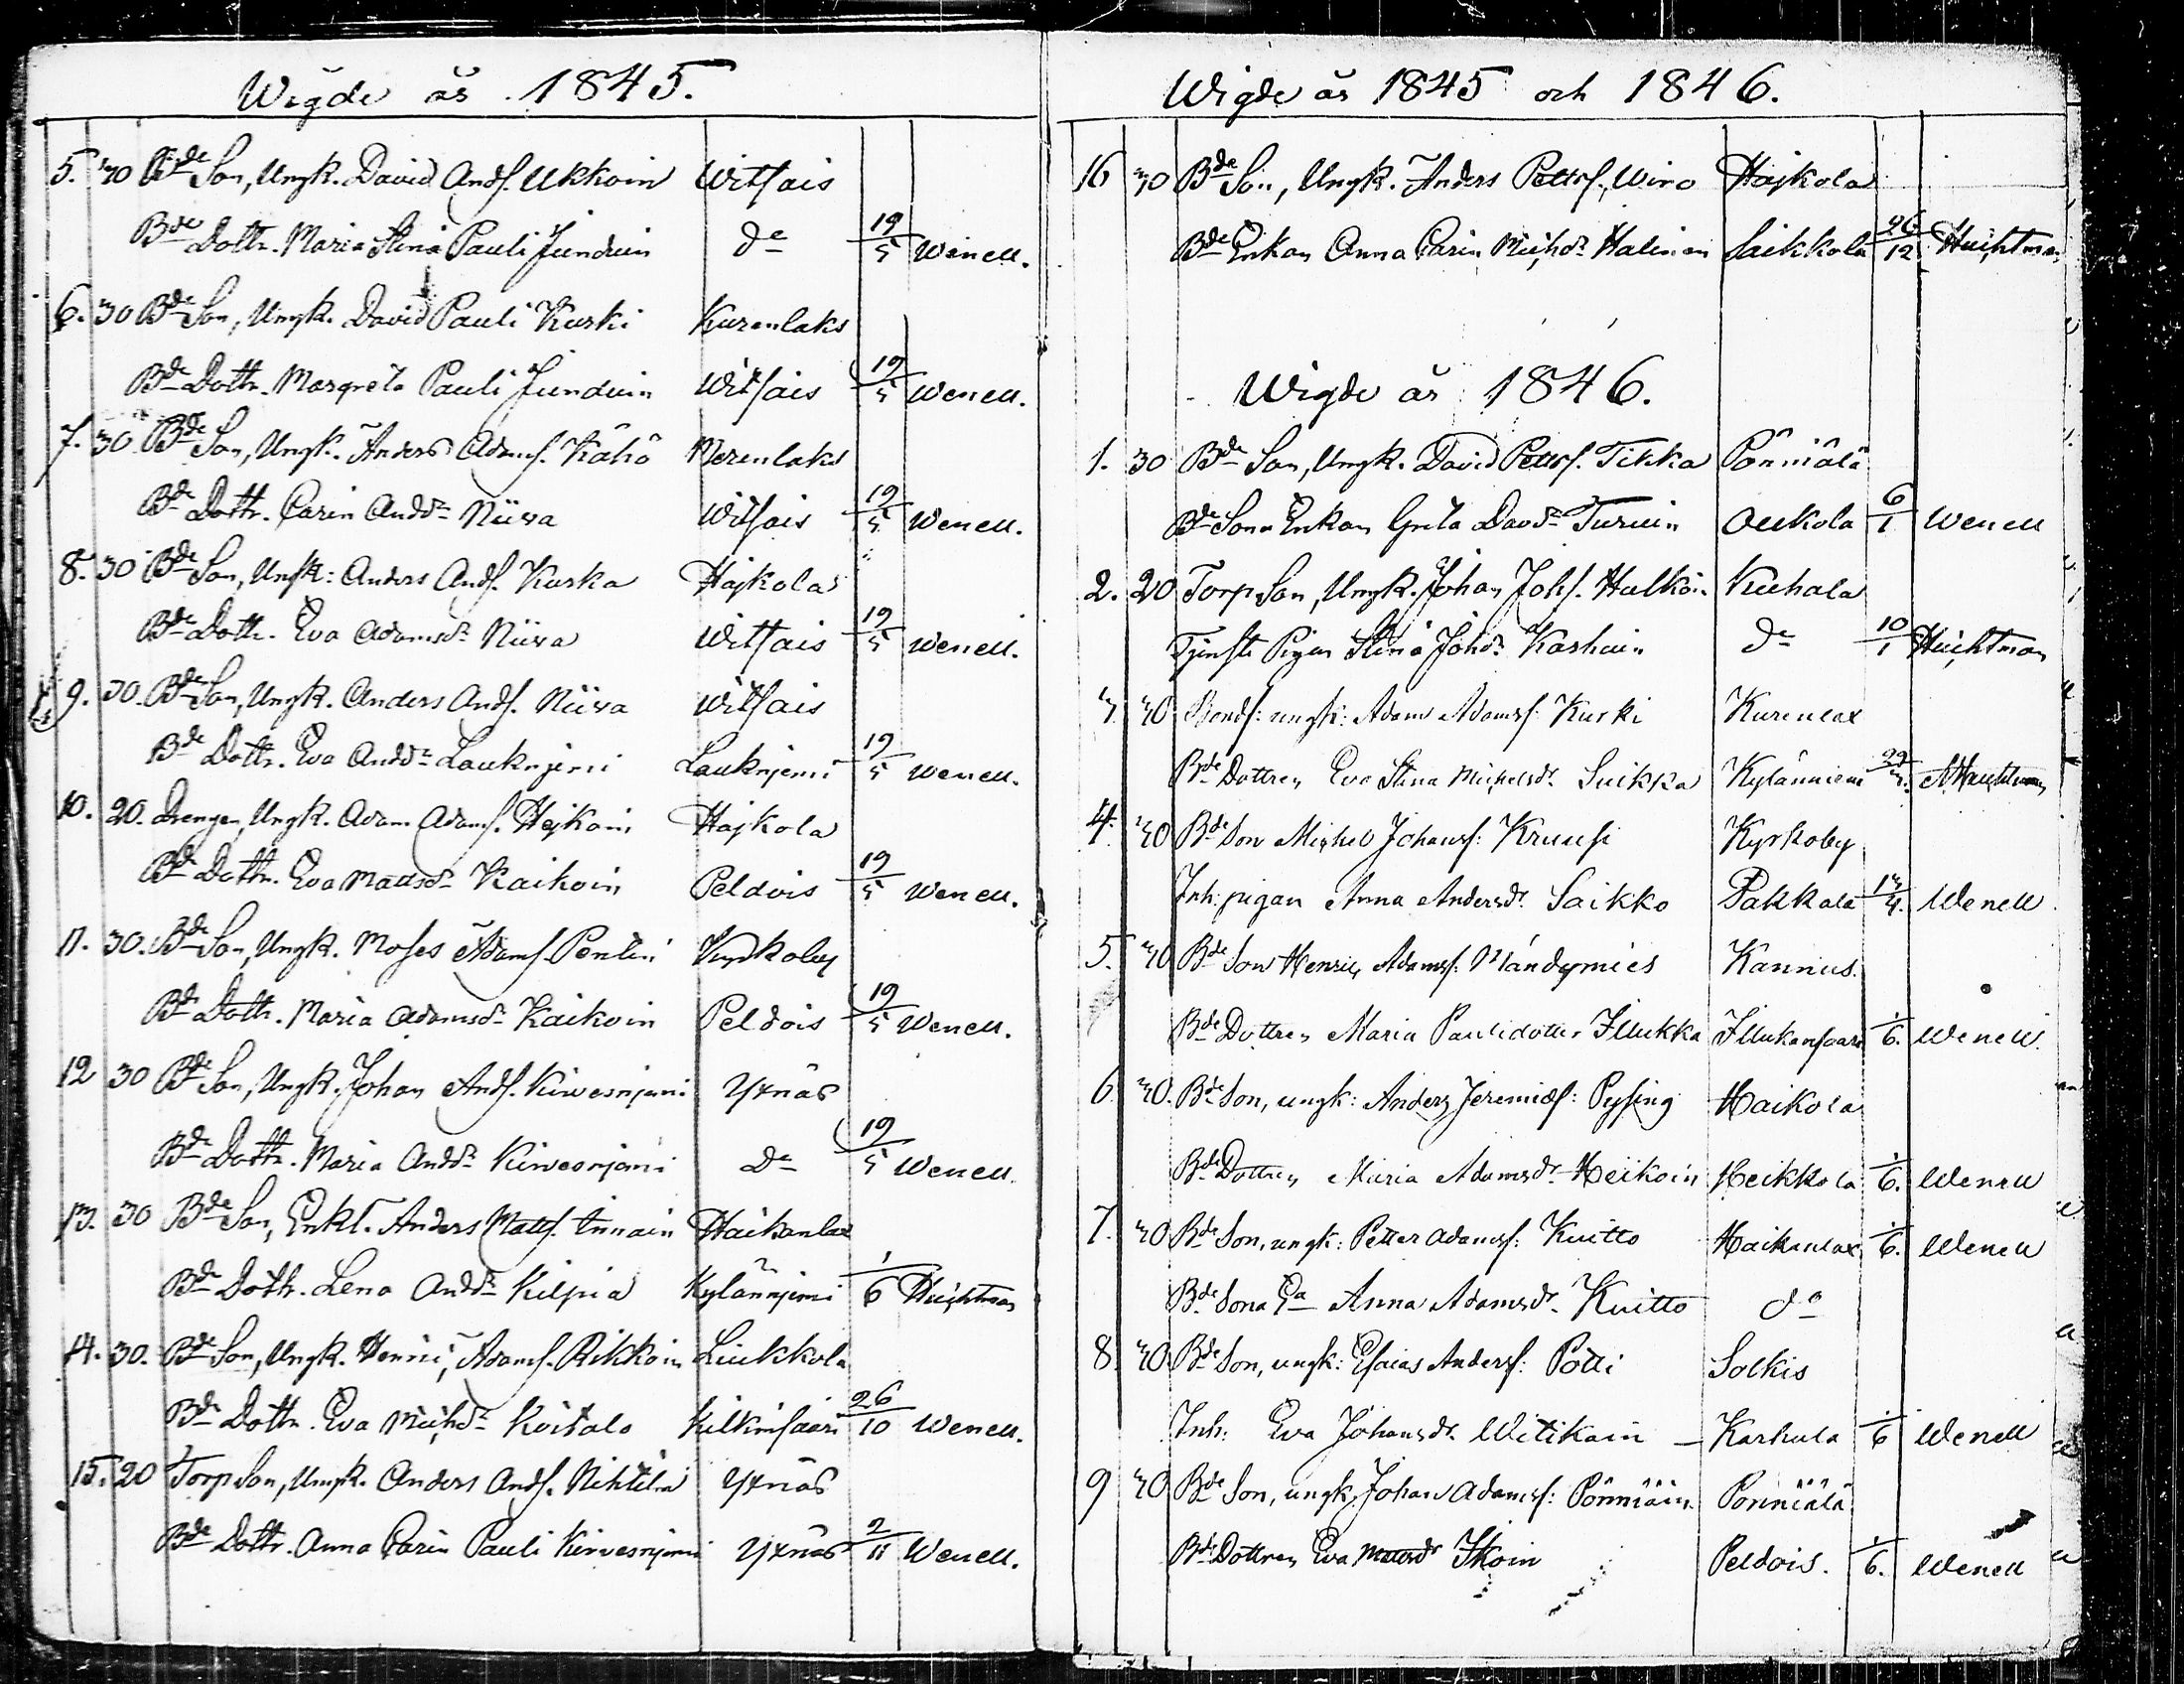 Wigde år 1845.
5. 30 Bde Son, Ungk. David Ands. Ukkoin Witsais
Bde Dottr. Maria Stina Pauli Junduin de 19/5 Wenell.
6. 30 Bde Son, Ungk. David Pauli Kurki Kurenlaks
Bde Dottr. Margreta Pauli Junduin Witsais 19/5 Wenell.
7. 30 Bde Son, Ungk. Anders Adams. Kähö Merenlaks
Bde Dottr. Carin Anddr Niiva Witsais 19/5 Wenell.
8. 30 Bde Son, Ungk: Anders Ands. Kurka Hajkola
Bde Dottr. Eva Adamsdr Niiva Witsais 19/5 Wenell.
9. 30. Bde Son, Ungk. Anders Ands. Niiva Witsais
Bde Dottr. Eva Anddr Lauknjemi Lauknjemi 19/5 Wenell.
10. 20. Drengen, Ungk. Adam Adams. Hejkoin Hajkola
Bde Dottr. Eva Madsdr Kaikoin Peldois 19/5 Wenell.
11. 30. Bde Son, Ungk. Moses Adams. Penttin Kyrkoby
Bde Dottr. Maria Adamsdr Kaikoin Peldois 19/5 Wenell.
12 30 Bde Son, Ungk. Johan Ands. Kirvesnjemi Yxnäs
Bde Dottr. Maria Anddr Kirvesnjemi de 19/5 Wenell.
13. 30 Bde Son, Enkl. Anders Matts. Innain Haikanlax
Bde Dottr. Lena Anddr Kilpia Kylännjemi 1/6 Huichtman
14. 30. Bde Son, Ungk. Henric Adams. Rikkoin Liukkola
Bde Dottr. Eva Michdr Koitalo Kilkinsaari 26/10 Wenell.
15. 20 Torp Son, Ungk. Anders Ands. Nihtilä Yxnäs
Bde Dottr. Anna Carin Pauli Kirvesnjemi Yxnäs 2/11 Wenell.
Wigde år 1845 och 1846.
16 30 Bde Son, Ungk. Anders Petters. Wiro Hajkola
Bde Enkan Anna Carin Michdr Halinen Saikkola 26/12 Huichtman
Wigde år 1846.
1. 30 Bde Son, Ungk. David Petters. Tikka Pönniälä
Bde Sona Enkan Greta Davdr Turuin Ollkola 6/1 Wenell
2. 20 Torp Son, Ungk. Johan Johs. Hulkoin Kiehala
Tjenste Pigan Stina Johdr Karhuin de 10/1 Huichtman
3. 30 Bonds: ungk: Adam Adamss: Kurki Kurenlax
Bde Dottren Eva Stina Michelsdr Suikka Kylänniemi 29/3. A. Hauchtman
4. 30 Bde Son Michel Johanss: Kruusi Kyrkoby
Inh: pigan Anna Andersdr. Saikko Pakkala 13/4. Wenell
5. 30 Bde Son Henric Adamss: Mändymies Kannus.
Bde Dottren Maria Paulidotter Illukka Illukansaari 1/6. Wenell.
6 30. Bde Son, ungk: Anders Jeremiæs: Pysing Haikola
Bde Dottren Maria Adamsdr. Heikoin Heikkola 1/6. Wenell
7. 30 Bde Son, ungk: Petter Adamss: Kuitto Haikanlax 1/6. Wenell
Bde Sona Ea Anna Adamsdr. Kuitto do
8. 30 Bde Son, ungk: Esaias Anderss: Pötti Solkis
Inh: Eva Johansdr. Witikain — Karhula 1/6 Wenell
9 30 Bde Son, ungk. Johan Adamss: Pönniäin Pönniälä
Bde Dottren Eva Mattsdr Ikoin Peldois. 1/6. Wenell